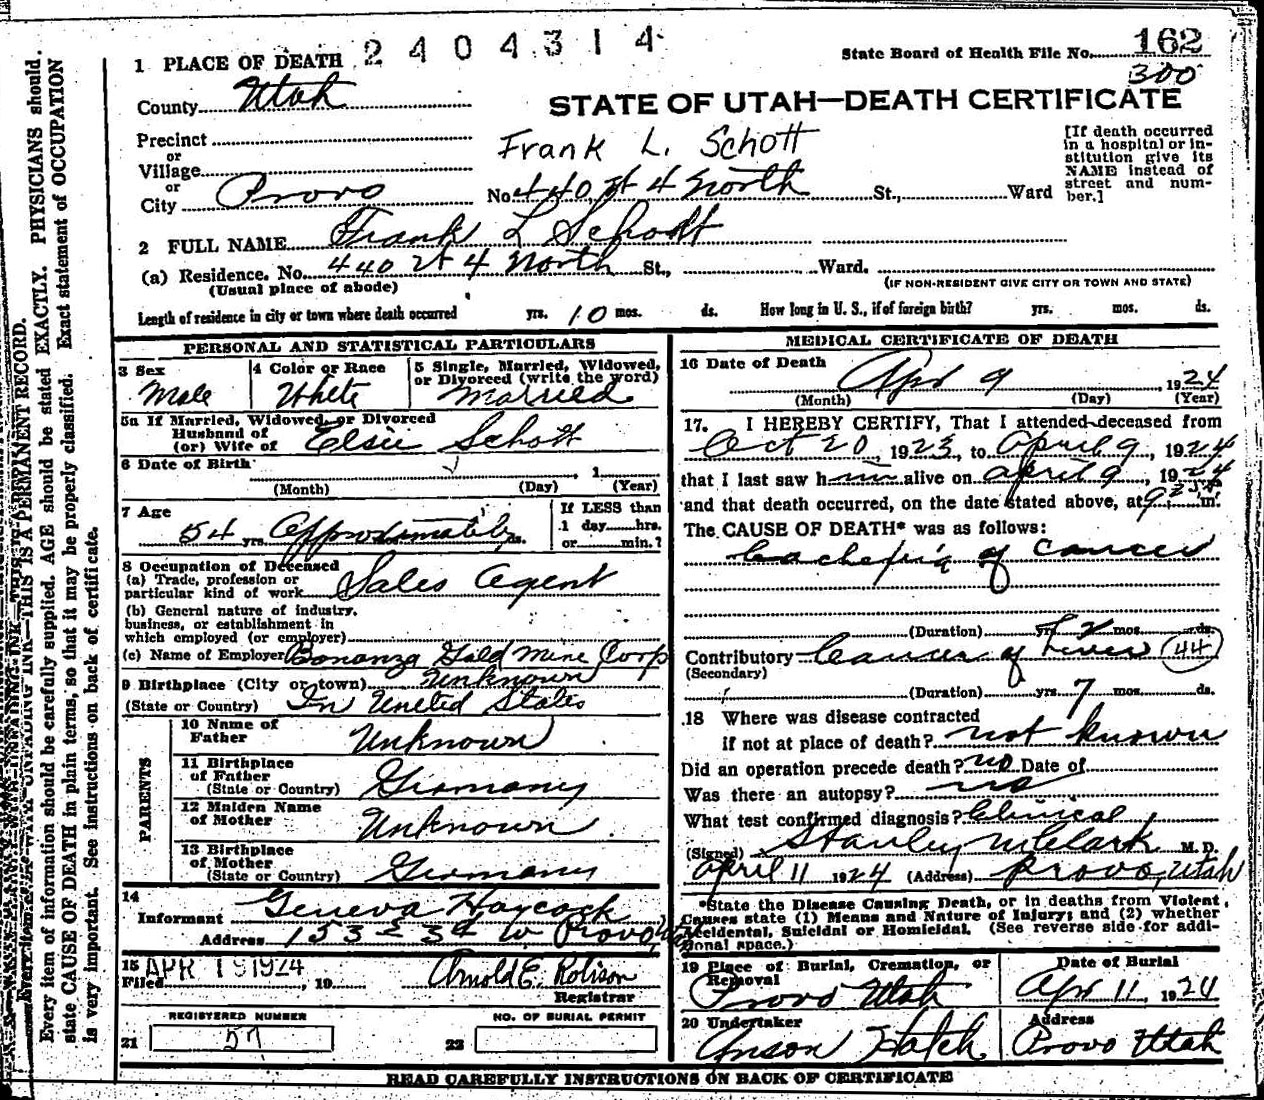 2404314
State Board of Health File No. 162
300
1 PLACE OF DEATH
County Utah
STATE OF UTAH—DEATH CERTIFICATE
Precinct
or
Village
or
City Provo
Frank L. Schott
No. 440 4 North St., Ward
[If death occurred
in a hospital or in-
stitution give its
NAME instead of
street and num-
ber.]
2 FULL NAME Frank L Schott
(a) Residence. No. 440 4 North St., Ward.
(Usual place of abode)
(IF NON-RESIDENT GIVE CITY OR TOWN AND STATE)
Length of residence in city or town where death occurred yrs. 10 mos. ds. How long in U. S., if of foreign birth? yrs. mos. ds.
PERSONAL AND STATISTICAL PARTICULARS
3 Sex
Male
4 Color or Race
White
5 Single, Married, Widowed,
or Divorced (write the word)
Married
5a If Married, Widowed, or Divorced
Husband of
(or) Wife of Elsie Schott
6 Date of Birth 1
(Month) (Day) (Year)
7 Age
54 yrs. Approximately
If LESS than
1 day hrs.
or min.?
8 Occupation of Deceased
(a) Trade, profession or
particular kind of work Sales Agent
(b) General nature of industry,
business, or establishment in
which employed (or employer)
(c) Name of Employer Bonanza Gold Mine Corp
9 Birthplace (City or town) Unknown
(State or Country) In United States
PARENTS
10 Name of
Father Unknown
11 Birthplace
of Father
(State or Country) Germany
12 Maiden Name
of Mother Unknown
13 Birthplace
of Mother
(State or Country) Germany
14
Informant Geneva Haycock
Address 153 W Provo
15 APR 1924
Filed , 19 Arnold E. Robison
Registrar
REGISTERED NUMBER
21 57
NO. OF BURIAL PERMIT
22
MEDICAL CERTIFICATE OF DEATH
16 Date of Death
Apr 9, 1924
(Month) (Day) (Year)
17. I HEREBY CERTIFY, That I attended deceased from
Oct 20, 1923, to April 9, 1924
that I last saw him alive on April 9, 1924
and that death occurred, on the date stated above, at m.
The CAUSE OF DEATH* was as follows:
Cachexia of Cancer
(Duration) yrs. 2 mos. ds.
Contributory Cancer of Liver (44)
(Secondary)
(Duration) yrs. 7 mos. ds.
18 Where was disease contracted
if not at place of death? not known
Did an operation precede death? no Date of
Was there an autopsy? no
What test confirmed diagnosis? Clinical
(Signed) Stanley M Clark M. D.
April 11 1924 (Address) Provo, Utah
*State the Disease Causing Death, or in deaths from Violent
Causes state (1) Means and Nature of Injury; and (2) whether
Accidental, Suicidal or Homicidal. (See reverse side for addi-
tional space.)
19 Place of Burial, Cremation, or
Removal
Provo Utah
Date of Burial
Apr 11, 1924
20 Undertaker
Anson Hatch
Address
Provo Utah
READ CAREFULLY INSTRUCTIONS ON BACK OF CERTIFICATE
Every item of information should be carefully supplied. AGE should be stated EXACTLY. PHYSICIANS should
state CAUSE OF DEATH in plain terms, so that it may be properly classified. Exact statement of OCCUPATION
is very important. See instructions on back of certificate.
THIS IS A PERMANENT RECORD.